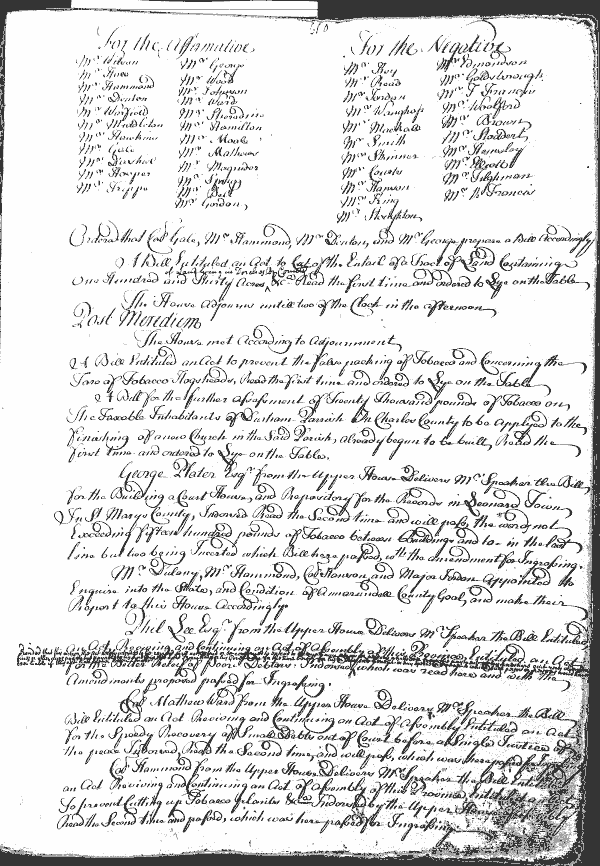 For the Affirmative For the Negative
Mr Wilson Mr George Mr Hoy Mr Edmondson
Mr Mr Wood Mr Read Mr Goldsborough
Mr Hammond Mr Johnson Mr Jordan Mr J Francis
Mr Denton Mr Ward Mr Waughop Mr Woolford
Mr Winfield Mr Sheredine Mr Mackall Mr Brown
Mr Middleton Mr Hamilton Mr Smith Mr Stoddert
Mr Hawkins Mr Moale Mr Skinner Mr Hemsley
Mr Gale Mr Mathews Mr Courts Mr Scott
Mr Dashel Mr Magruder Mr Hanson Mr Tilghman
Mr Hooper Mr Sprigg Mr King Mr R Francis
Mr Trippe Mr Bell Mr Stoughton
Mr Gordon
Ordered that Col Gale, Mr Hammond, Mr Denton, and Mr George prepare a Bill Accordingly
A Bill Entituled an Act to Cut of the Entail of a Tract of Land Containing
One Hundred and thirty Acres &c Read the first time and ordered to Lye on the Table
The House Adjourns untill two of the Clock in the afternoon
Post Meredium
The House met According to Adjournment
A Bill Entituled an Act to prevent the false packing of Tobacco and Concerning the
Tare of Tobacco Hogsheads, Read the first time and ordered to Lye on the Table
A Bill for the further assessment of Twenty Thousand pounds of Tobacco on
The Taxable Inhabitants of Durham Parrish In Charles County to be Applyed to the
finishing of a new Church in the Said Parish, already begun to be built, Read the
first time and ordered to Lye on the Table.
George Plater Esqr from the Upper House Delivers Mr Speaker the Bill
for the Building a Court House, and Repository for the Records in Leonard Town
In St Marys County, Indorsed Read the Second time and will pass, the word not
Exceeding fifteen hundred pounds of Tobacco between and to in the last
line but two being Inserted which Bill here passed, wth the amendment for Ingrossing.
Mr Dulany, Mr Hammond, Col Hanson and Major Jordan Appointed to
Enquire into the State, and Condition of Annarundell County Goal, and make their
Report to this House Accordingly
Phil Lee Esqr from the Upper House Delivers Mr Speaker the Bill Entituled
an Act Reviving and Continuing an Act of Assembly of this Province Entituled an Act
for the better Relief of Poor Debtors Indorsed which was read here and with the
Amendments proposed passed for Ingrossing.
Col Mathew Ward from the Upper House Delivers Mr Speaker the Bill
Bill Entituled an Act Reviving and Continuing an Act of Assembly Entituled an Act
for the Speedy Recovery of Small Debts out of Court before a Single Justice of
the peace Indorsed, Read the Second time, and will pass, which was here passed for Ingrossing
Col Hammond from the Upper House Delivers Mr Speaker the Bill Entituled
an Act Reviving and Continuing an Act of Assembly of this Province
to prevent Cutting up Tobacco plants &c Indorsed by the Upper House
Read the Second time and passed, which was here passed for Ingrossing